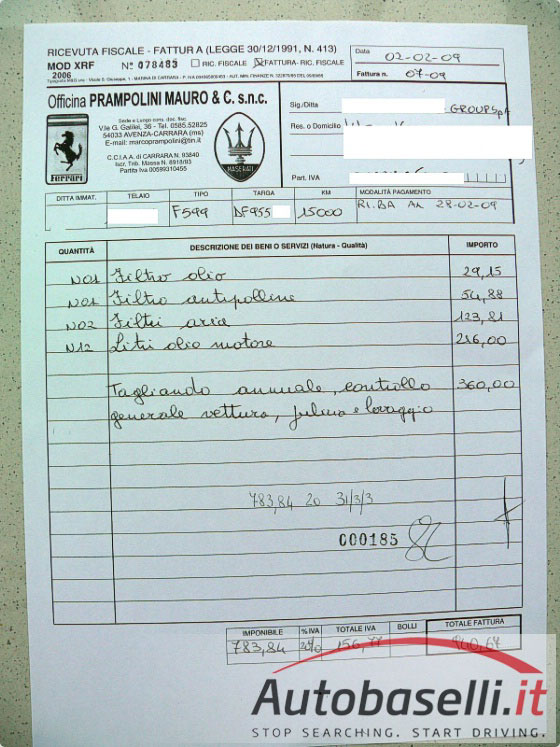 RICEVUTA FISCALE - FATTURA (LEGGE 30/12/1991, N. 413)
MOD XRF N° 078483 RIC. FISCALE FATTURA- RIC. FISCALE
2006
Data 02-02-09
Fattura n. 07-09
Officina PRAMPOLINI MAURO & C. s.n.c.
Sede e Luogo cons. doc. fisc.
V.le G. Galilei, 36 - Tel. 0585.52825
54033 AVENZA-CARRARA (ms)
E-mail: marcoprampolini@tin.it
C.C.I.A.A. di CARRARA N. 93840
Iscr. Trib. Massa N. 6918/03
Partita Iva 00599310455
Ferrari
MASERATI
Sig./Ditta GROUP SpA
Res. o Domicilio
Part. IVA
DITTA IMMAT. TELAIO TIPO TARGA KM MODALITÀ PAGAMENTO
F599 DF955 15000 RI.BA AL 28-02-09
QUANTITÀ DESCRIZIONE DEI BENI O SERVIZI (Natura - Qualità) IMPORTO
N01 Filtro olio 29,15
N01 Filtro antipolline 54,88
N02 Filtri aria 123,81
N12 Litri olio motore 216,00
Tagliando annuale, controllo 360,00
generale vettura, pulizia e lavaggio
783,84 20 31/3/3
000185
IMPONIBILE % IVA TOTALE IVA BOLLI TOTALE FATTURA
783,84 20% 156,77 940,67
Autobaselli.it
STOP SEARCHING. START DRIVING.